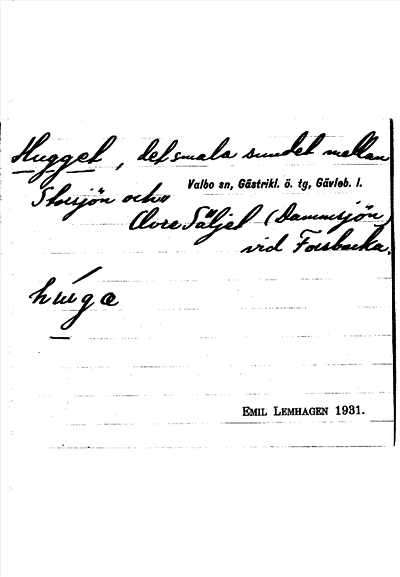 Hugget, det smala sundet mellan
Valbo sn, Gästrikl. ö. tg, Gävleb. l.
Storsjön och
Övre Säljet (Dammsjön)
vid Forsbacka.
hugæ
EMIL LEMHAGEN 1931.